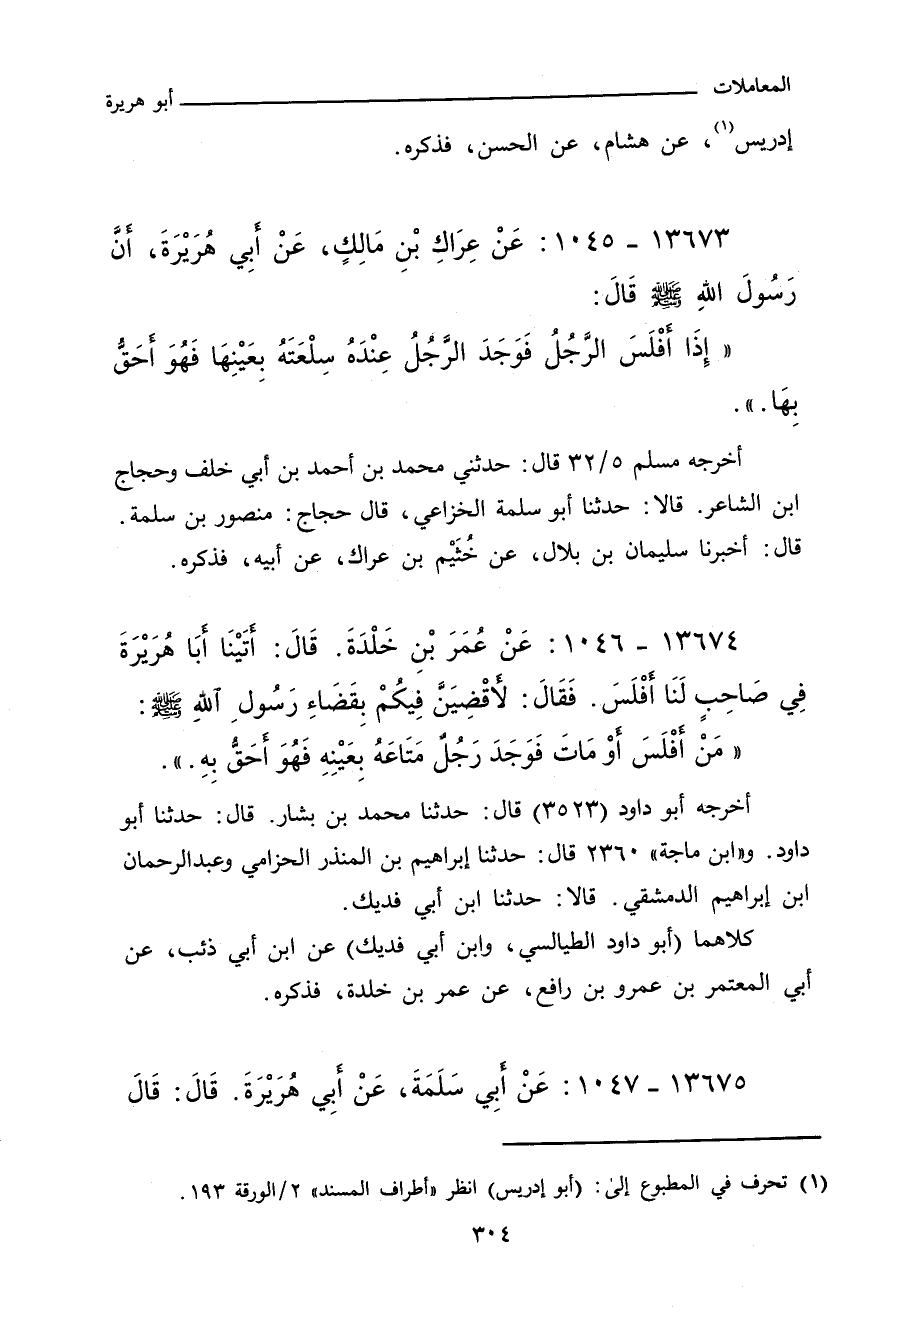 المعاملات ــــــــــــــــ أبو هريرة
إدريس(١)، عن هشام، عن الحسن، فذكره.
١٣٦٧٣ - ١٠٤٥ : عَنْ عِرَاكِ بْنِ مَالِكٍ، عَنْ أَبِي هُرَيْرَةَ، أَنَّ
رَسُولَ اللهِ ﷺ قَالَ:
« إِذَا أَفْلَسَ الرَّجُلُ فَوَجَدَ الرَّجُلُ عِنْدَهُ سِلْعَتَهُ بِعَيْنِهَا فَهُوَ أَحَقُّ
بِهَا.».
أخرجه مسلم ٣٢/٥ قال: حدثني محمد بن أحمد بن أبي خلف وحجاج
ابن الشاعر. قالا: حدثنا أبو سلمة الخزاعي، قال حجاج: منصور بن سلمة.
قال: أخبرنا سليمان بن بلال، عن خُثَيْم بن عراك، عن أبيه، فذكره.
١٣٦٧٤ - ١٠٤٦ : عَنْ عُمَرَ بْنِ خَلْدَةَ. قَالَ: أَتَيْنَا أَبَا هُرَيْرَةَ
فِي صَاحِبٍ لَنَا أَفْلَسَ. فَقَالَ: لَأَقْضِيَنَّ فِيكُمْ بِقَضَاءِ رَسُولِ ٱللهِ ﷺ:
« مَنْ أَفْلَسَ أَوْ مَاتَ فَوَجَدَ رَجُلٌ مَتَاعَهُ بِعَيْنِهِ فَهُوَ أَحَقُّ بِهِ.».
أخرجه أبو داود (٣٥٢٣) قال: حدثنا محمد بن بشار. قال: حدثنا أبو
داود. و«ابن ماجة» ٢٣٦٠ قال: حدثنا إبراهيم بن المنذر الحزامي وعبدالرحمان
ابن إبراهيم الدمشقي. قالا: حدثنا ابن أبي فديك.
كلاهما (أبو داود الطيالسي، وابن أبي فديك) عن ابن أبي ذئب، عن
أبي المعتمر بن عمرو بن رافع، عن عمر بن خلدة، فذكره.
١٣٦٧٥ - ١٠٤٧ : عَنْ أَبِي سَلَمَةَ، عَنْ أَبِي هُرَيْرَةَ. قَالَ: قَالَ
(١) تحرف في المطبوع إلىٰ: (أبو إدريس) انظر «أطراف المسند» ٢/الورقة ١٩٣.
٣٠٤